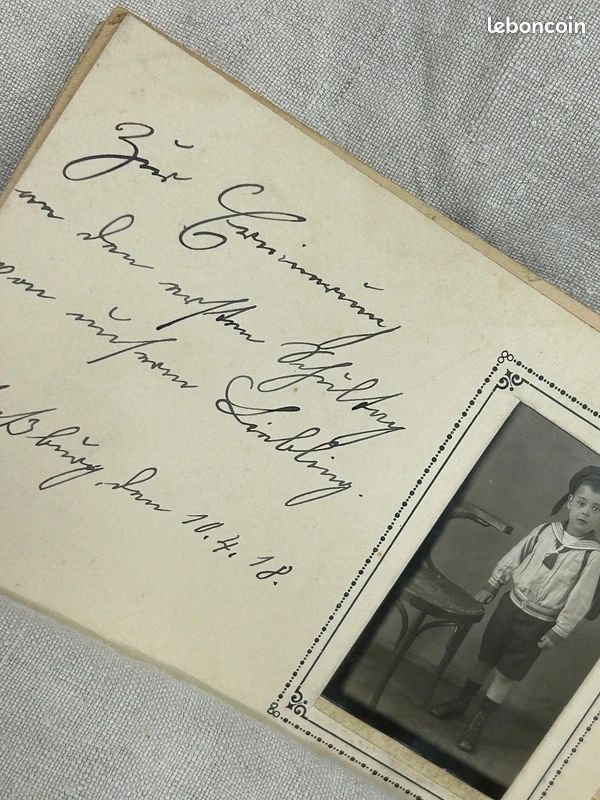 leboncoin
Zur Erinnerung
an den ersten Schultag
von unserm Liebling.
ßburg, den 10.4.18.